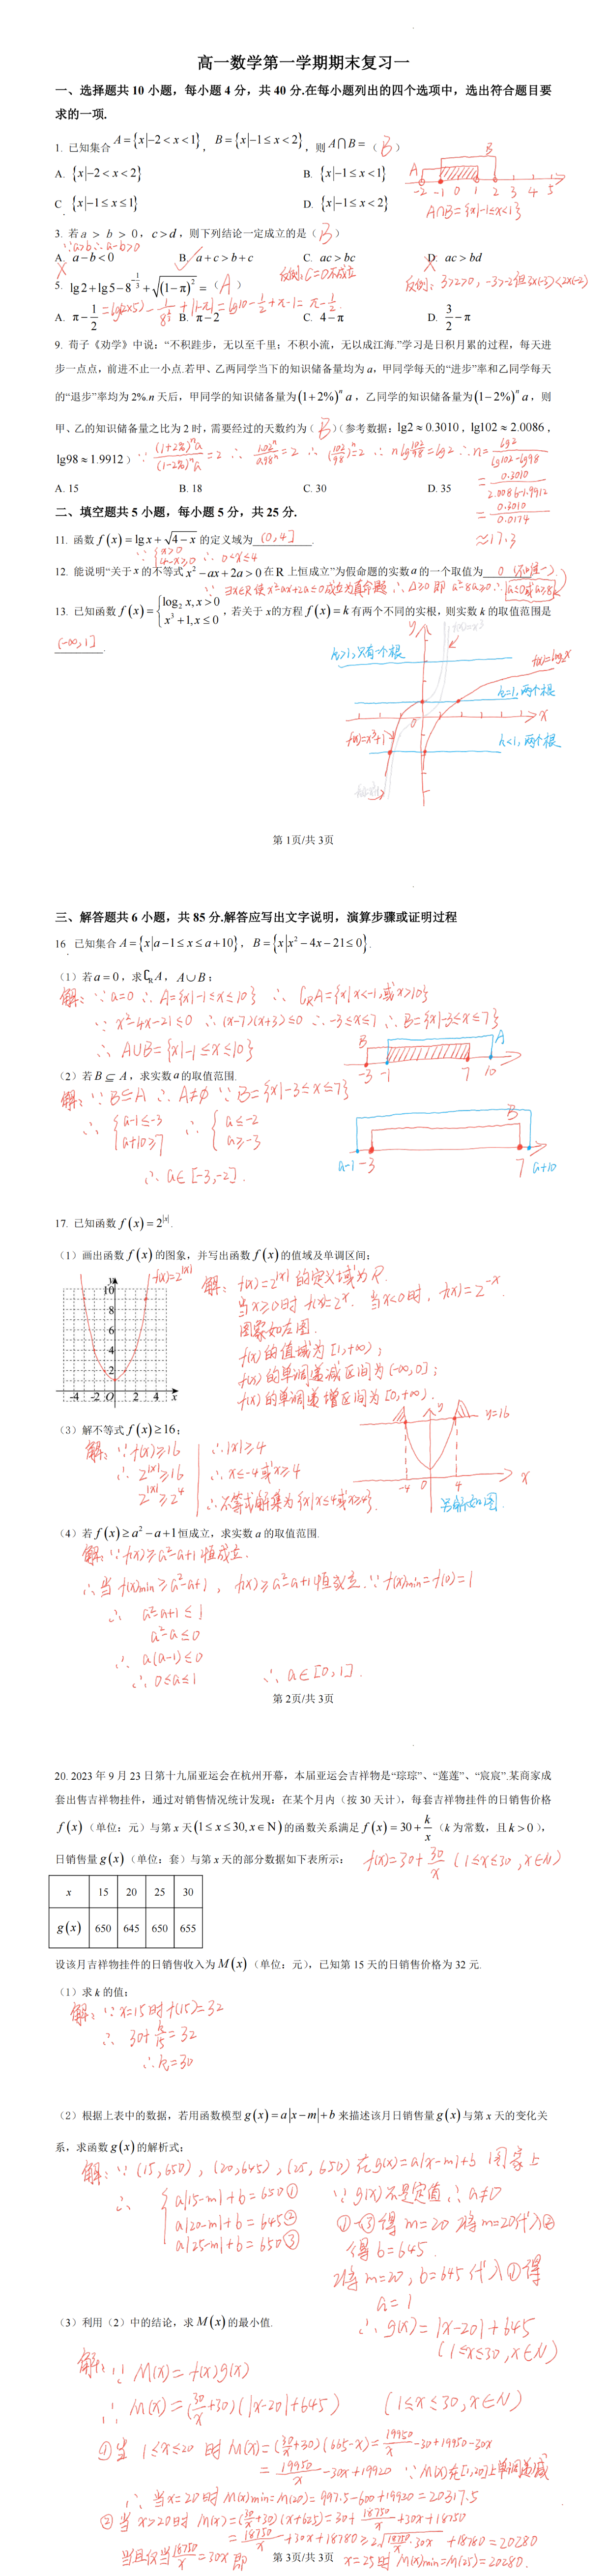 高一数学第一学期期末复习一
一、选择题共 10 小题，每小题 4 分，共 40 分.在每小题列出的四个选项中，选出符合题目要
求的一项.
1. 已知集合 A={x|-2<x<1}，B={x|-1≤x<2}，则 A∩B=（ B ）
A. {x|-2<x<2}
B. {x|-1≤x<1}
C {x|-1≤x≤1}
D. {x|-1≤x<2}
A B
-2 -1 0 1 2 3 4 5
A∩B={x|-1≤x<1}
3. 若 a > b > 0，c>d，则下列结论一定成立的是（ B ）
∵a>b∴a-b>0
A. a-b<0 B. a+c>b+c C. ac>bc D. ac>bd
反例,C=0不成立
反例: 3>2>0, -3>-2但3x(-3)<2x(-2)
5. lg2+lg5-8^(-1/3)+√(1-π)²=（ A ）
=lg(2x5)-1/8^(1/3)+|1-π|=lg10-1/2+π-1=π-1/2.
A. π-1/2 B. π-2 C. 4-π D. 3/2-π
9. 荀子《劝学》中说：“不积跬步，无以至千里；不积小流，无以成江海.”学习是日积月累的过程，每天进
步一点点，前进不止一小点.若甲、乙两同学当下的知识储备量均为 a，甲同学每天的“进步”率和乙同学每天
的“退步”率均为 2%.n 天后，甲同学的知识储备量为(1+2%)ⁿa，乙同学的知识储备量为(1-2%)ⁿa，则
甲、乙的知识储备量之比为 2 时，需要经过的天数约为（ B ）(参考数据：lg2≈0.3010，lg102≈2.0086，
lg98≈1.9912）
∵(1+2%)ⁿa/(1-2%)ⁿa=2 ∴1.02ⁿ/0.98ⁿ=2 ∴(102/98)ⁿ=2 ∴nlg102/98=lg2 ∴n=lg2/(lg102-lg98)
=0.3010/(2.0086-1.9912)
=0.3010/0.0174
≈17.3
A. 15 B. 18 C. 30 D. 35
二、填空题共 5 小题，每小题 5 分，共 25 分.
11. 函数 f(x)=lgx+√(4-x) 的定义域为 (0,4] .
∵{x>0 4-x≥0 ∴0<x≤4
12. 能说明“关于 x 的不等式 x²-ax+2a>0 在 R 上恒成立”为假命题的实数 a 的一个取值为 0 (不唯一).
∵∃x∈R使x²-ax+2a≤0成立为真命题 ∴Δ≥0即a²-8a≥0∴a≤0或a≥8
13. 已知函数 f(x)={log₂x,x>0 x³+1,x≤0，若关于 x的方程 f(x)=k 有两个不同的实根，则实数 k 的取值范围是
(-∞,1] .
k>1,只有一个根
f(x)=x³
f(x)=log₂x
k=1,两个根
f(x)=x³+1
k<1,两个根
y 0 x
第 1页/共 3页
三、解答题共 6 小题，共 85 分.解答应写出文字说明，演算步骤或证明过程
16 已知集合 A={x|a-1≤x≤a+10}，B={x|x²-4x-21≤0}.
（1）若 a=0，求∁RA，A∪B；
解: ∵a=0 ∴A={x|-1≤x≤10} ∴CRA={x|x<-1,或x>10}
∵x²-4x-21≤0 ∴(x-7)(x+3)≤0 ∴-3≤x≤7 ∴B={x|-3≤x≤7}
∴A∪B={x|-1≤x≤10}
B A
-3 -1 7 10
（2）若 B⊆A，求实数 a 的取值范围.
解: ∵B⊆A ∴A≠∅ ∵B={x|-3≤x≤7}
∴{a-1≤-3 a+10≥7 ∴{a≤-2 a≥-3
∴a∈[-3,-2].
B
a-1 -3 7 a+10
17. 已知函数 f(x)=2^|x|.
（1）画出函数 f(x) 的图象，并写出函数 f(x) 的值域及单调区间；
f(x)=2^|x|
y 10 8 6 4 2
-4 -2 O 2 4 x
解: f(x)=2^|x|的定义域为R.
当x≥0时 f(x)=2^x. 当x<0时, f(x)=2^-x.
图象如左图.
f(x)的值域为[1,+∞);
f(x)的单调递减区间为(-∞,0];
f(x)的单调递增区间为[0,+∞).
（3）解不等式 f(x)≥16；
解: ∵f(x)≥16 ∴|x|≥4
∴2^|x|≥16 ∴x≤-4或x≥4
2^|x|≥2⁴ ∴不等式解集为{x|x≤4或x≥4}.
y y=16
-4 0 4 x
另解如图.
（4）若 f(x)≥a²-a+1 恒成立，求实数 a 的取值范围.
解: ∵f(x)≥a²-a+1恒成立.
∴当f(x)min≥a²-a+1, f(x)≥a²-a+1恒成立. ∵f(x)min=f(0)=1
∴a²-a+1≤1
a²-a≤0
∴a(a-1)≤0
∴0≤a≤1 ∴a∈[0,1].
第 2页/共 3页
20. 2023 年 9 月 23 日第十九届亚运会在杭州开幕，本届亚运会吉祥物是“琮琮”、“莲莲”、“宸宸”.某商家成
套出售吉祥物挂件，通过对销售情况统计发现：在某个月内（按 30 天计），每套吉祥物挂件的日销售价格
f(x)（单位：元）与第 x 天(1≤x≤30,x∈N)的函数关系满足 f(x)=30+k/x（k 为常数，且 k>0），
日销售量 g(x)（单位：套）与第 x 天的部分数据如下表所示：
f(x)=30+30/x (1≤x≤30,x∈N)
x 15 20 25 30
g(x) 650 645 650 655
设该月吉祥物挂件的日销售收入为 M(x)（单位：元），已知第 15 天的日销售价格为 32 元.
（1）求 k 的值；
解: ∵x=15时f(15)=32
∴30+k/15=32
∴k=30
（2）根据上表中的数据，若用函数模型 g(x)=a|x-m|+b 来描述该月日销售量 g(x) 与第 x 天的变化关
系，求函数 g(x) 的解析式；
解: ∵(15,650),(20,645),(25,650)在g(x)=a|x-m|+b 图象上
∴{a|15-m|+b=650① ∵g(x)不是定值∴a≠0
a|20-m|+b=645② ①-③得m=20 将m=20代入②
a|25-m|+b=650③ 得b=645.
将m=20,b=645代入①得
a=1
∴g(x)=|x-20|+645
(1≤x≤30,x∈N)
（3）利用（2）中的结论，求 M(x) 的最小值.
解: ∵M(x)=f(x)g(x)
∴M(x)=(30/x+30)(|x-20|+645) (1≤x≤30,x∈N)
①当1≤x≤20时M(x)=(30/x+30)(665-x)=19950/x-30+19950-30x
=19950/x-30x+19920 ∵M(x)在[1,20]上单调递减
∴当x=20时M(x)min=M(20)=997.5-600+19920=20317.5
②当x>20时 M(x)=(30/x+30)(x+625)=30+18750/x+30x+18750
=18750/x+30x+18780≥2√(18750/x·30x)+18780=20280
当且仅当18750/x=30x即 x=25时M(x)min=M(25)=20280.
第 3页/共 3页